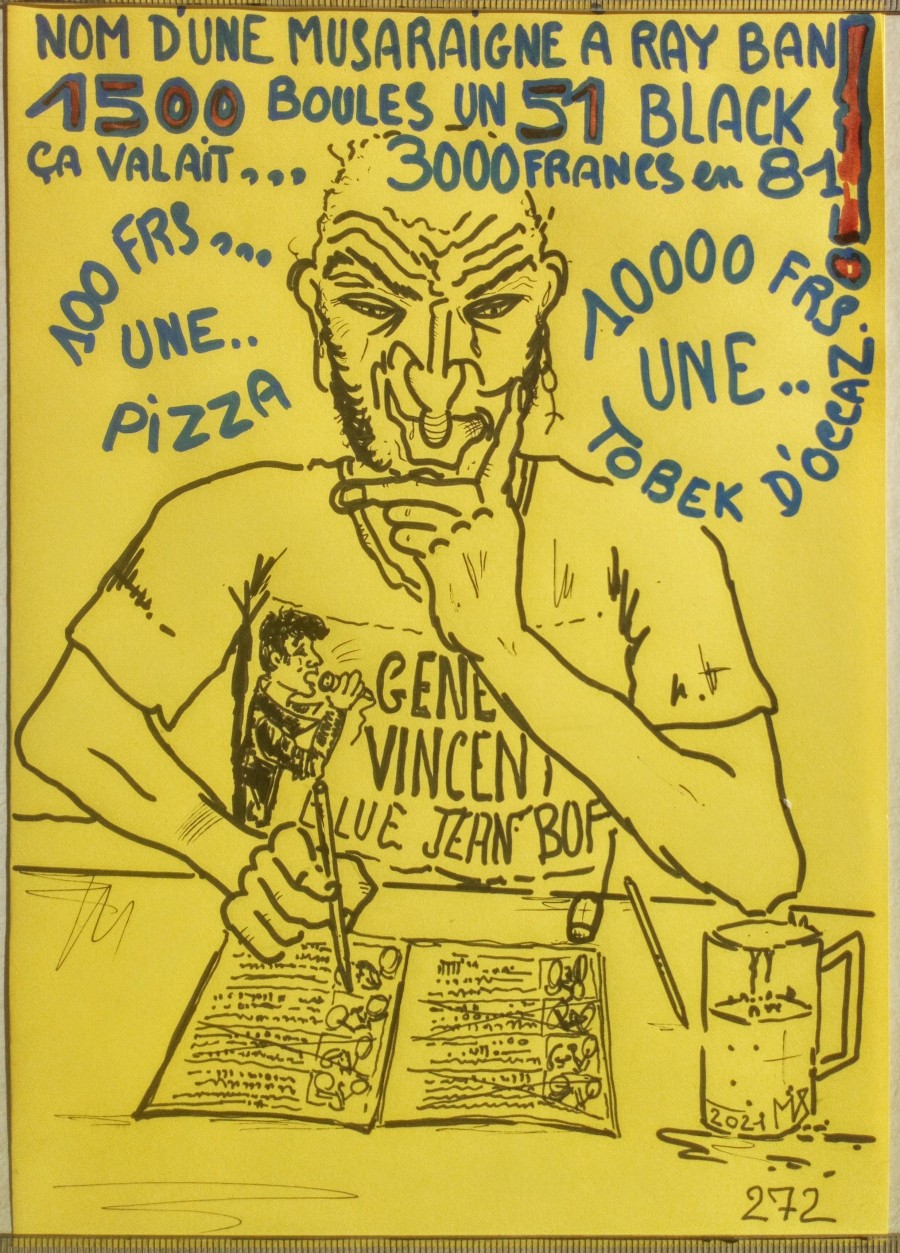 NOM D'UNE MUSARAIGNE A RAY BAN !
1500 BOULES UN 51 BLACK
ÇA VALAIT... 3000 FRANCS en 81
100 FRS...
UNE..
PIZZA
10000 FRS.
UNE..
TOBEK D'OCCAZ.
GENE
VINCENT
LUE JEAN BOP
2021 MIX
272